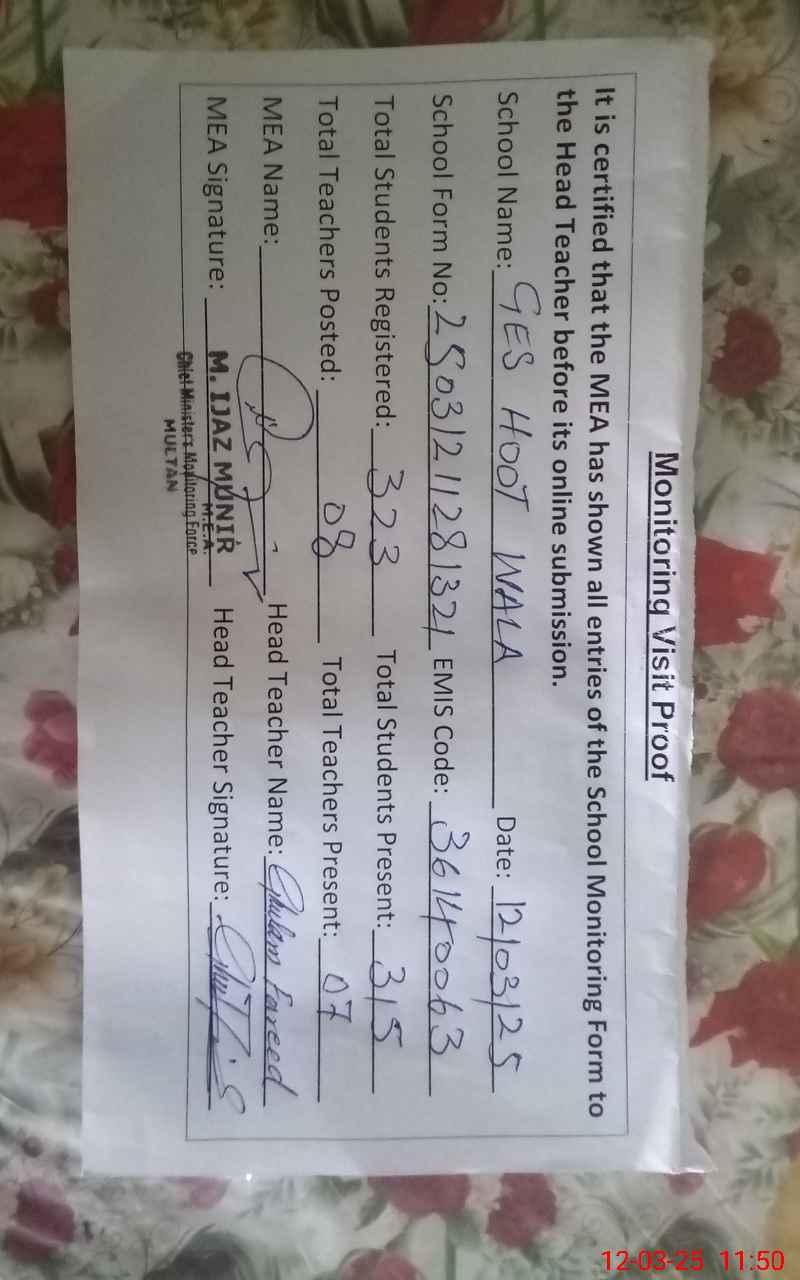 Monitoring Visit Proof
It is certified that the MEA has shown all entries of the School Monitoring Form to
the Head Teacher before its online submission.
School Name: GES HOOT WALA Date: 12/03/25
School Form No: 25031211281321 EMIS Code: 36140063
Total Students Registered: 323 Total Students Present: 315
Total Teachers Posted: 08 Total Teachers Present: 07
MEA Name: Head Teacher Name: Ghulam Fareed
MEA Signature: M. IJAZ MUNIR Head Teacher Signature:
M.E.A.
Chief Ministers Monitoring Force
MULTAN
12-03-25 11:50